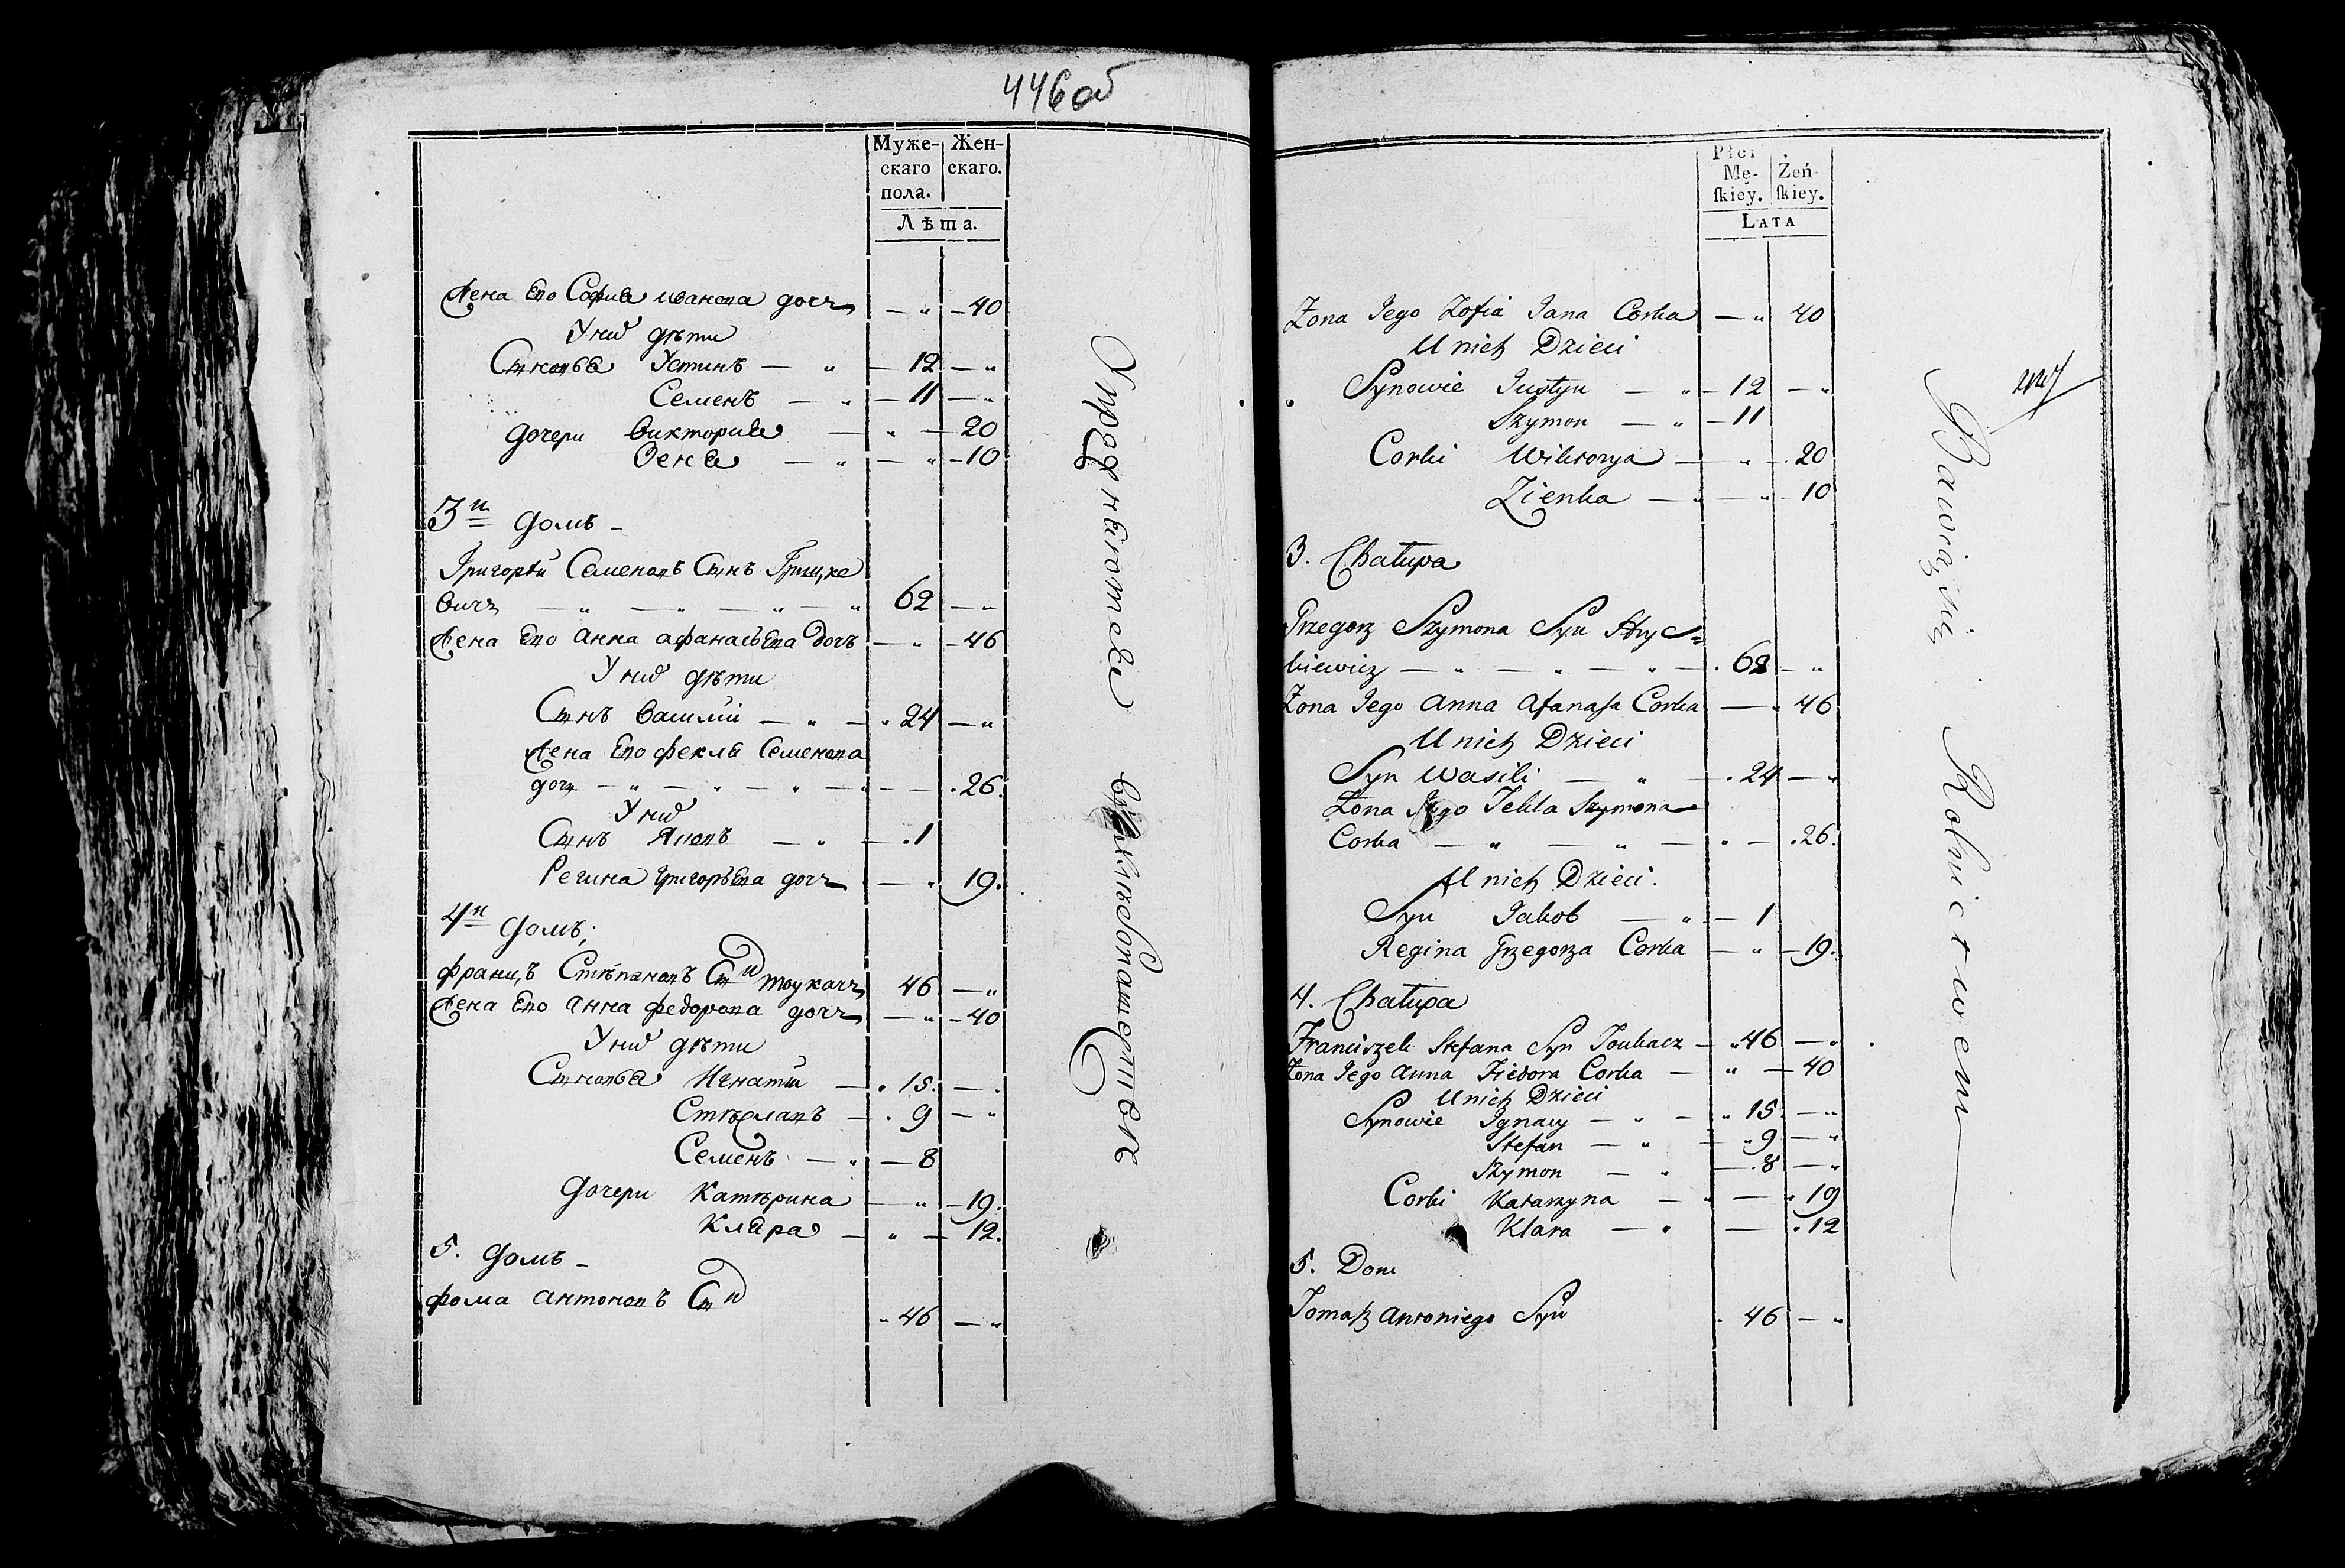 446об
Муже- Жен-
скаго скаго.
пола.
Лѣта.
Жена Его Софиа иванова дочь — " — 40
У них дѣти
Сыновья Устинъ — " — 12 — "
Семенъ — " — 11 — "
дочери викториа — " — 20
Зенa — " — " — 10
3й домъ —
Григорѣй Семеновъ Сынъ Грицке
вичь — " — " — " — " 62 — "
Жена Его Анна афанасьева дочь — " — 46
У них дѣти
Сынъ Василий — " — " 24 — "
Жена Его фекла Семенова
дочь — " — " — " — " — 26.
У них
Сынъ Яковъ — " — 1
Регина григорьева дочь — " 19.
4й домъ;
францъ Стѣпановъ Сын тоукачь 46 — "
Жена Его Анна федорова дочь — " — 40
У них дѣти
Сыновья Игнатій — " 15. — "
Стѣфанъ — " 9 — "
Семенъ — " — 8
дочери Катѣрина — " — 19.
Клара — " — 12.
5. домъ —
фома антоновъ Сын " 46 — "
Упражняются в хлебопашестве
Płci
Mę- Żeń-
ſkiey. ſkiey.
LATA
Zona Jego Zofia Jana Corka — " 40
U nich Dzieci
Synowie Justyn — " — 12 — "
Szymon — " — 11
Corki Wiktorya — " — 20
Zienka — " — " — 10
3. Chałupa
Grzegorz Szymona Syn Hryc=
kiewicz — " — " — " — 62 — "
Zona Jego Anna Afanaſa Corka — " 46
U nich Dzieci
Syn Wasili — " — 24 — "
Zona Jego Tekla Szymona
Corka — " — " — " — 26.
U nich Dzieci.
Syn Jakob — " — 1
Regina Grzegorza Corka — " — 19.
4. Chałupa
Franciszek Stefana Syn Toukacz — " 46 — "
Zona Jego Anna Fiedora Corka — " — 40
U nich Dzieci
Synowie Ignacy — " — " 15. — "
Stefan — " — " 9 — "
Szymon — " — 8 — "
Corki Katarzyna — " — " 19
Klara — " — " 12
5. Dom
Tomaſz Antoniego Syn " 46 — "
Bawią się Rolnictwem